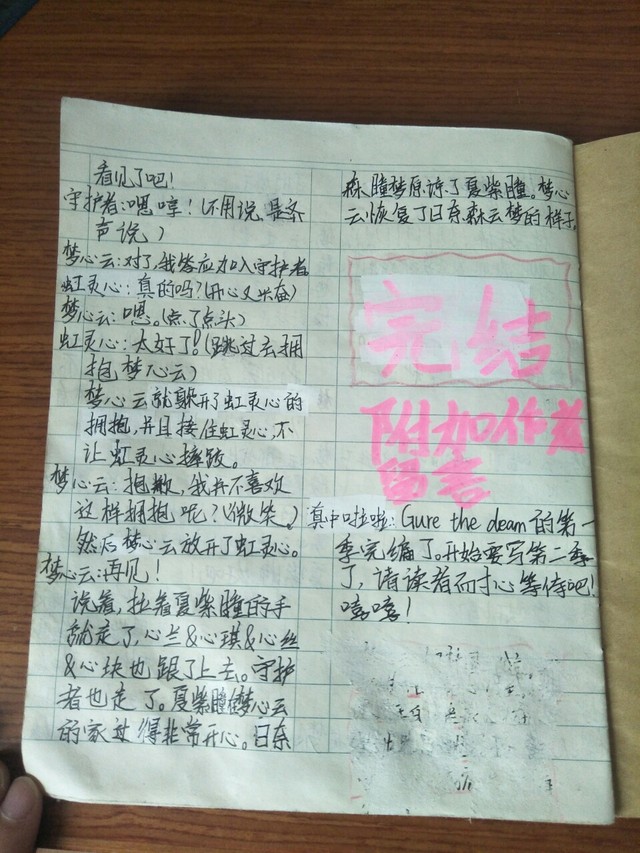 看见了吧!
守护者:嗯哼!(不用说,是齐
声说)
梦心云:对了,我答应加入守护者
虹灵心:真的吗?(开心又兴奋)
梦心云:嗯。(点了点头)
虹灵心:太好了!(跳过去拥
抱梦心云)
梦心云就躲开了虹灵心的
拥抱,并且接住虹灵心,不
让虹灵心摔跤。
梦心云:抱歉,我并不喜欢
这样拥抱呢?(微笑。)
然后梦心云放开了虹灵心。
梦心云:再见!
说着,拉着夏紫瞳的手
就走了,心兰&心琪&心丝
&心块也跟了上去。守护
者也走了。夏紫瞳在梦心云
的家过得非常开心。日奈
森瞳梦原谅了夏紫瞳。梦心
云恢复了日奈森云梦的样子。
完结
附加作者
留言
真中啦啦:Gure the deam的第一
季完编了。开始要写第二季
了,请读者耐心等待吧!
嘻嘻!